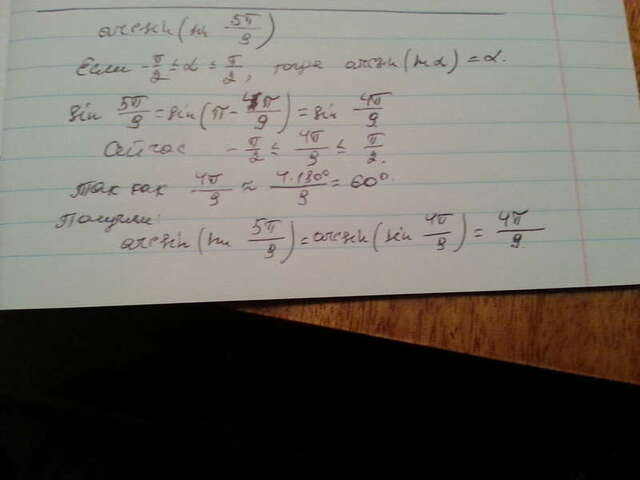 arcsin(sin 5π/9)
Если -π/2 ≤ α ≤ π/2, тогда arcsin(sin α) = α.
sin 5π/9 = sin(π - 4π/9) = sin 4π/9
Сейчас -π/2 ≤ 4π/9 ≤ π/2.
Так как 4π/9 ≈ 4·180°/9 = 60°.
Получим:
arcsin(sin 5π/9) = arcsin(sin 4π/9) = 4π/9